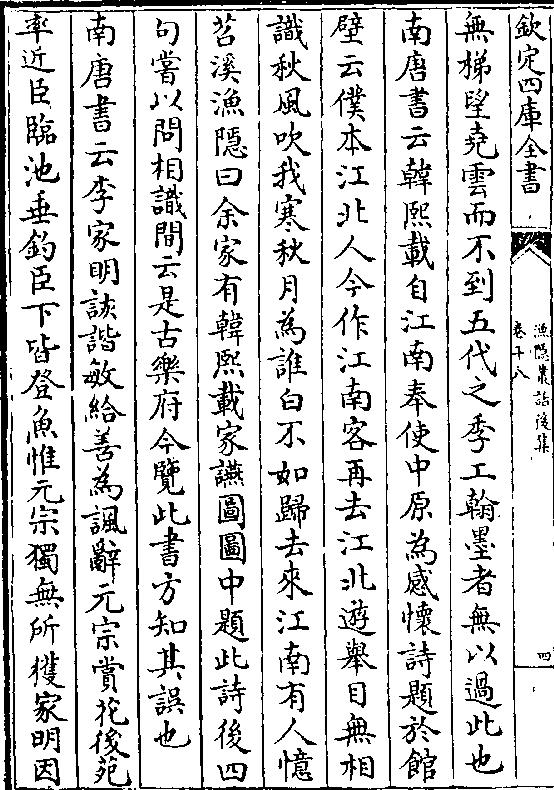 欽定四庫全書
漁隱叢話後集
卷十八
四
無梯望堯雲而不到五代之季工翰墨者無以過此也
南唐書云韓熙載自江南奉使中原為感懷詩題於館
壁云僕本江北人今作江南客再去江北遊舉目無相
識秋風吹我寒秋月為誰白不如歸去來江南有人憶
苕溪漁隱曰余家有韓熙載家讌圖圖中題此詩後四
句嘗以問相識間云是古樂府今覽此書方知其誤也
南唐書云李家明詼諧敏給善為諷辭元宗賞花後苑
率近臣臨池垂釣臣下皆登魚惟元宗獨無所獲家明因